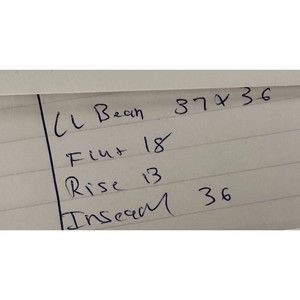 LL Bean 37 x 36
Flat 18
Rise 13
Inseam 36